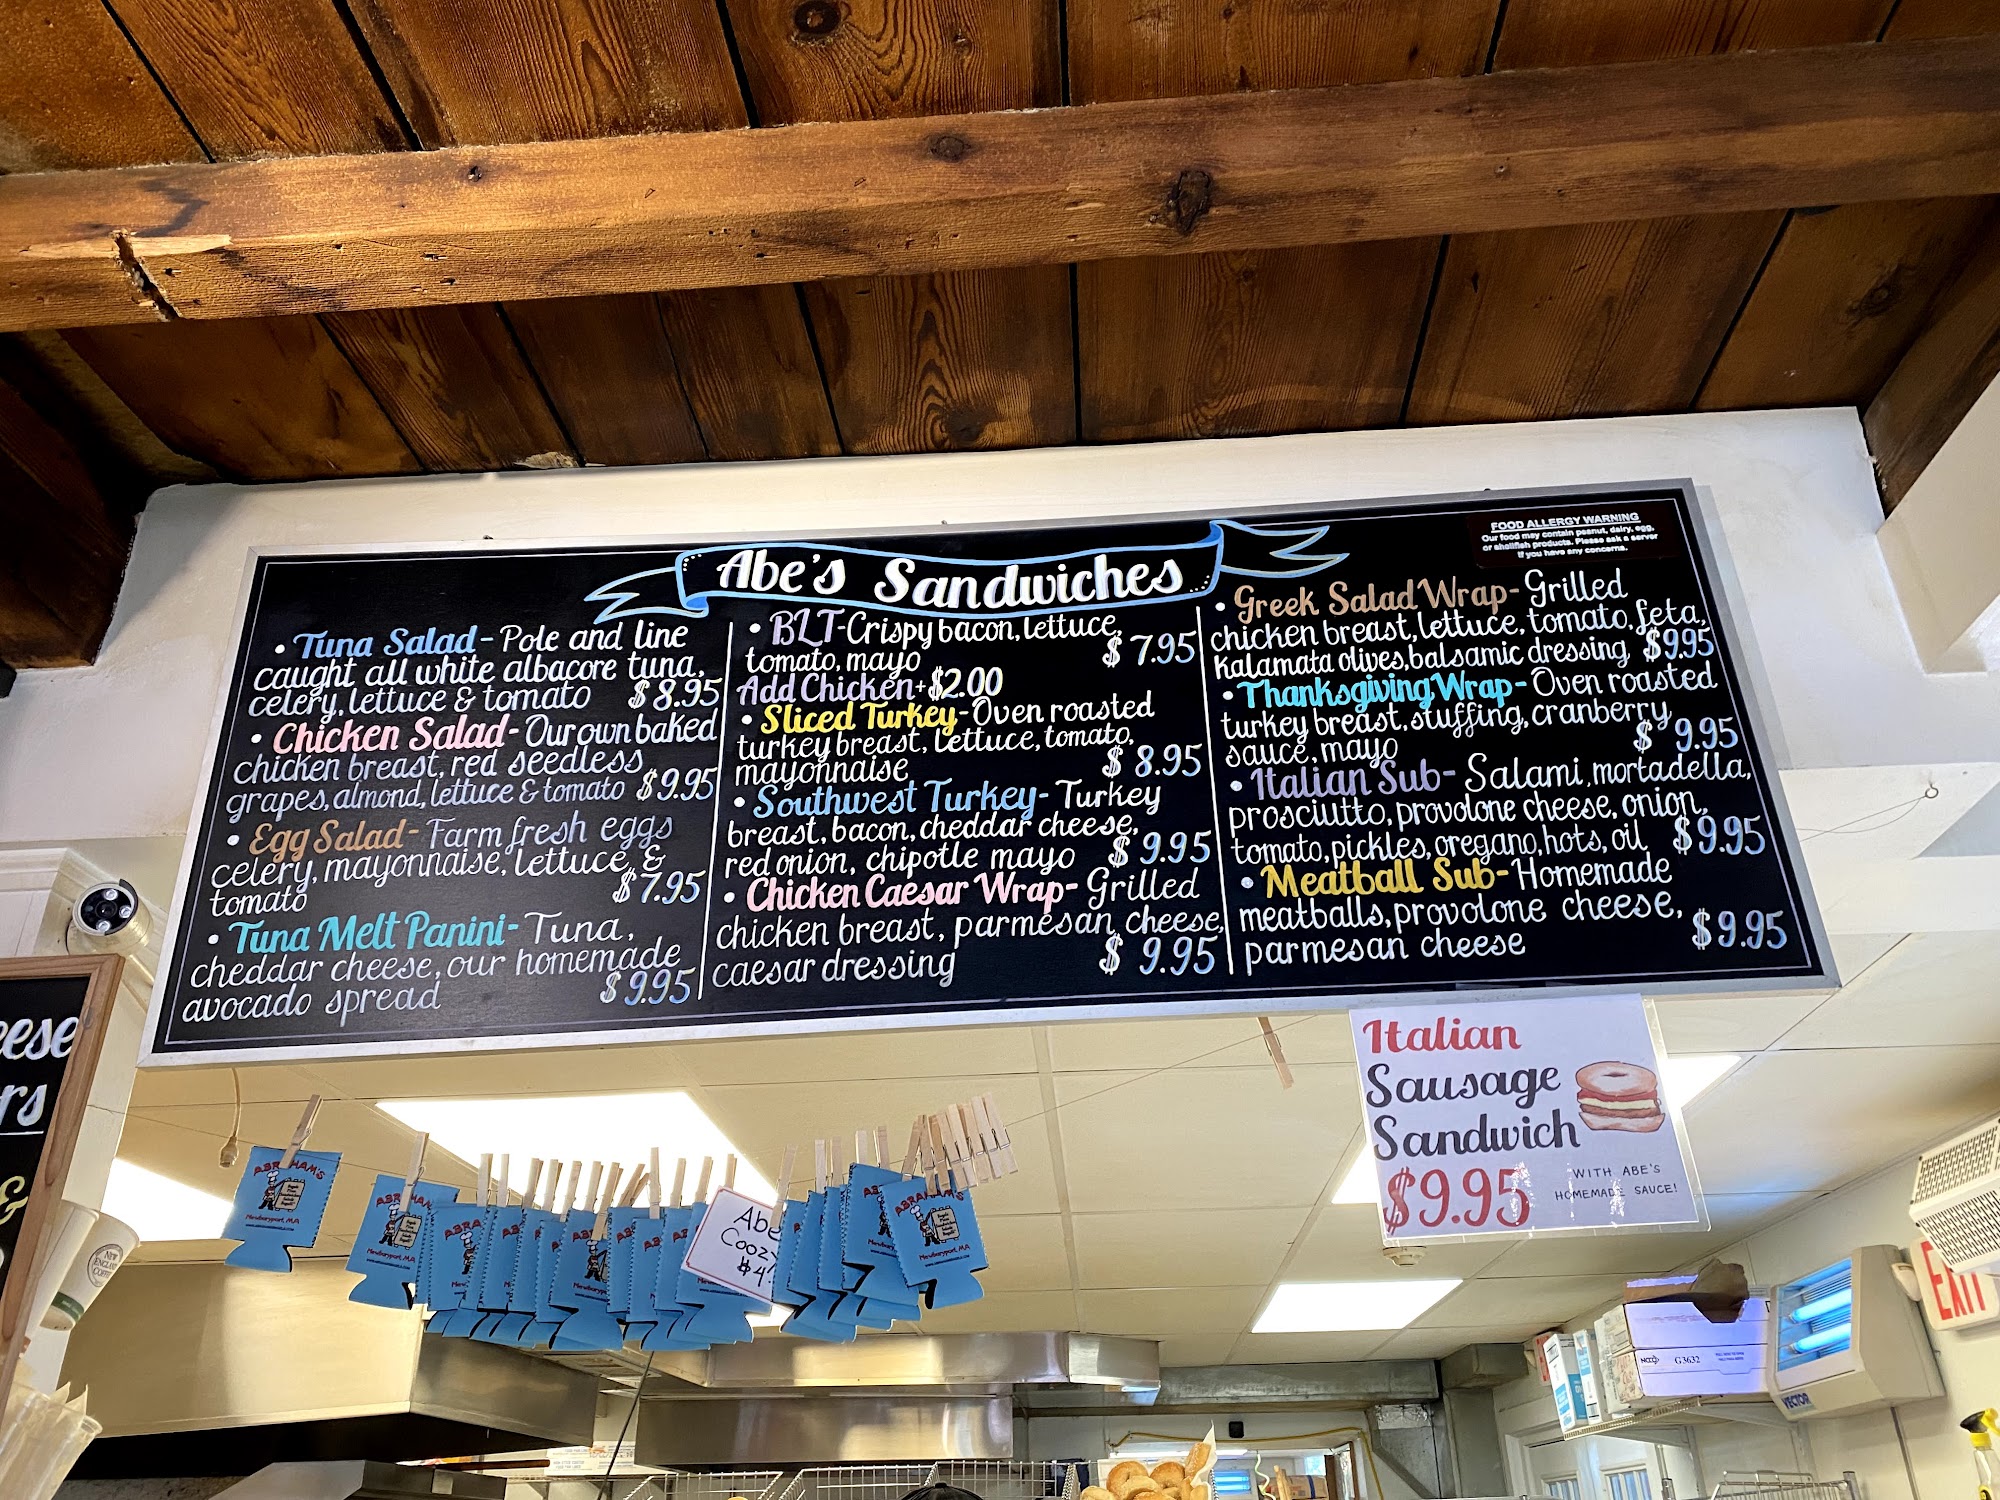 Abe's Sandwiches
FOOD ALLERGY WARNING
Our food may contain peanut, dairy, egg,
or shellfish products. Please ask a server
if you have any concerns.
• Tuna Salad - Pole and line
caught all white albacore tuna,
celery, lettuce & tomato $8.95
• Chicken Salad - Our own baked
chicken breast, red seedless
grapes, almond, lettuce & tomato $9.95
• Egg Salad - Farm fresh eggs
celery, mayonnaise, lettuce, &
tomato $7.95
• Tuna Melt Panini - Tuna,
cheddar cheese, our homemade
avocado spread $9.95
• BLT - Crispy bacon, lettuce,
tomato, mayo $7.95
Add Chicken + $2.00
• Sliced Turkey - Oven roasted
turkey breast, lettuce, tomato,
mayonnaise $8.95
• Southwest Turkey - Turkey
breast, bacon, cheddar cheese,
red onion, chipotle mayo $9.95
• Chicken Caesar Wrap - Grilled
chicken breast, parmesan cheese,
caesar dressing $9.95
• Greek Salad Wrap - Grilled
chicken breast, lettuce, tomato, feta,
kalamata olives, balsamic dressing $9.95
• Thanksgiving Wrap - Oven roasted
turkey breast, stuffing, cranberry
sauce, mayo $9.95
• Italian Sub - Salami, mortadella,
prosciutto, provolone cheese, onion,
tomato, pickles, oregano, hots, oil $9.95
• Meatball Sub - Homemade
meatballs, provolone cheese,
parmesan cheese $9.95
Italian
Sausage
Sandwich
$9.95
WITH ABE'S
HOMEMADE SAUCE!
ABRAHAM'S
Newburyport, MA
Abe
Coozy
$4
NEW
ENGLAND
COFFEE
G3632
VECTOR
EXIT
&